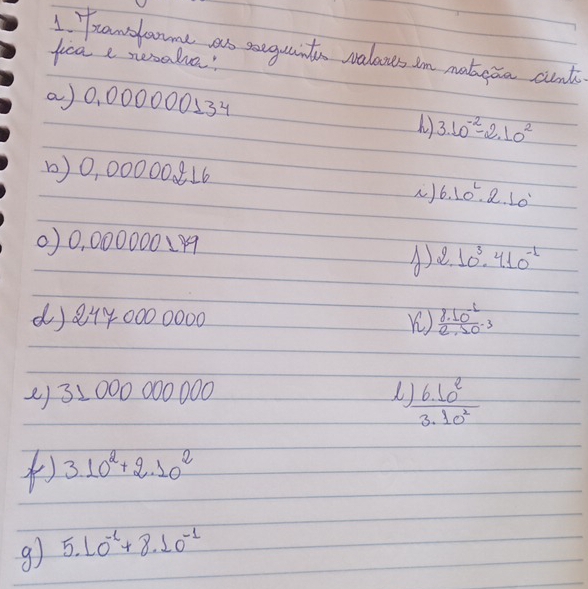 1. Transforme os seguintes valores em notação cientí-
fica e resolva:
a) 0,000000134
b) 0,00000216
c) 0,000000179
d) 247 000 0000
e) 31 000 000 000
f) 3.10² + 2.10²
g) 5.10⁻¹ + 8.10⁻¹
h) 3.10⁻² - 2.10²
i) 6.10² . 2.10¹
j) 2.10³ . 4.10⁻¹
k) 8.10⁻¹
2.10⁻³
l) 6.10²
3.10²